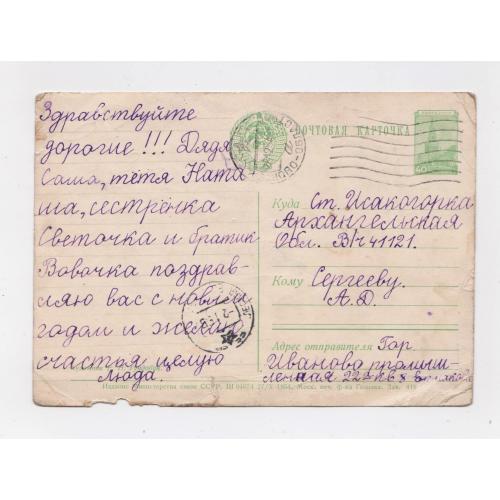 Здравствуйте
дорогие!!! Дядя
Саша, тётя Ната
ша, сестрёнка
Светочка и братик
Вовочка поздрав-
ляю вас с новым
годом и желаю
счастья целую
Люда.
ПОЧТОВАЯ КАРТОЧКА
40
Куда Ст. Исакогорка
Архангельская
Обл. В/ч 41121.
Кому Сергееву
А.Д.
Адрес отправителя Гор.
Иваново промыш-
ленная
Министерства связи СССР. 1954.